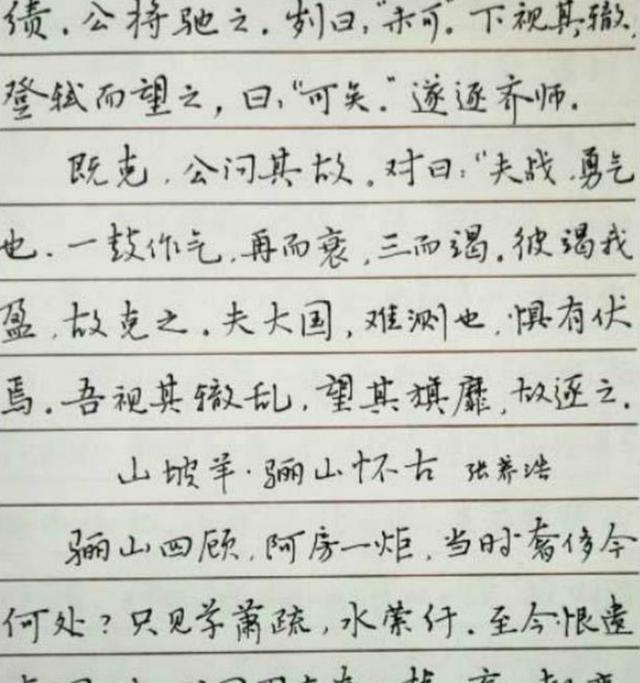 绩。公将驰之。刿曰:"未可。"下视其辙,
登轼而望之,曰:"可矣。"遂逐齐师。
既克,公问其故。对曰:"夫战,勇气
也。一鼓作气,再而衰,三而竭。彼竭我
盈,故克之。夫大国,难测也,惧有伏
焉。吾视其辙乱,望其旗靡,故逐之。
山坡羊·骊山怀古 张养浩
骊山四顾,阿房一炬,当时奢侈今
何处?只见草萧疏,水萦纡。至今恨遗